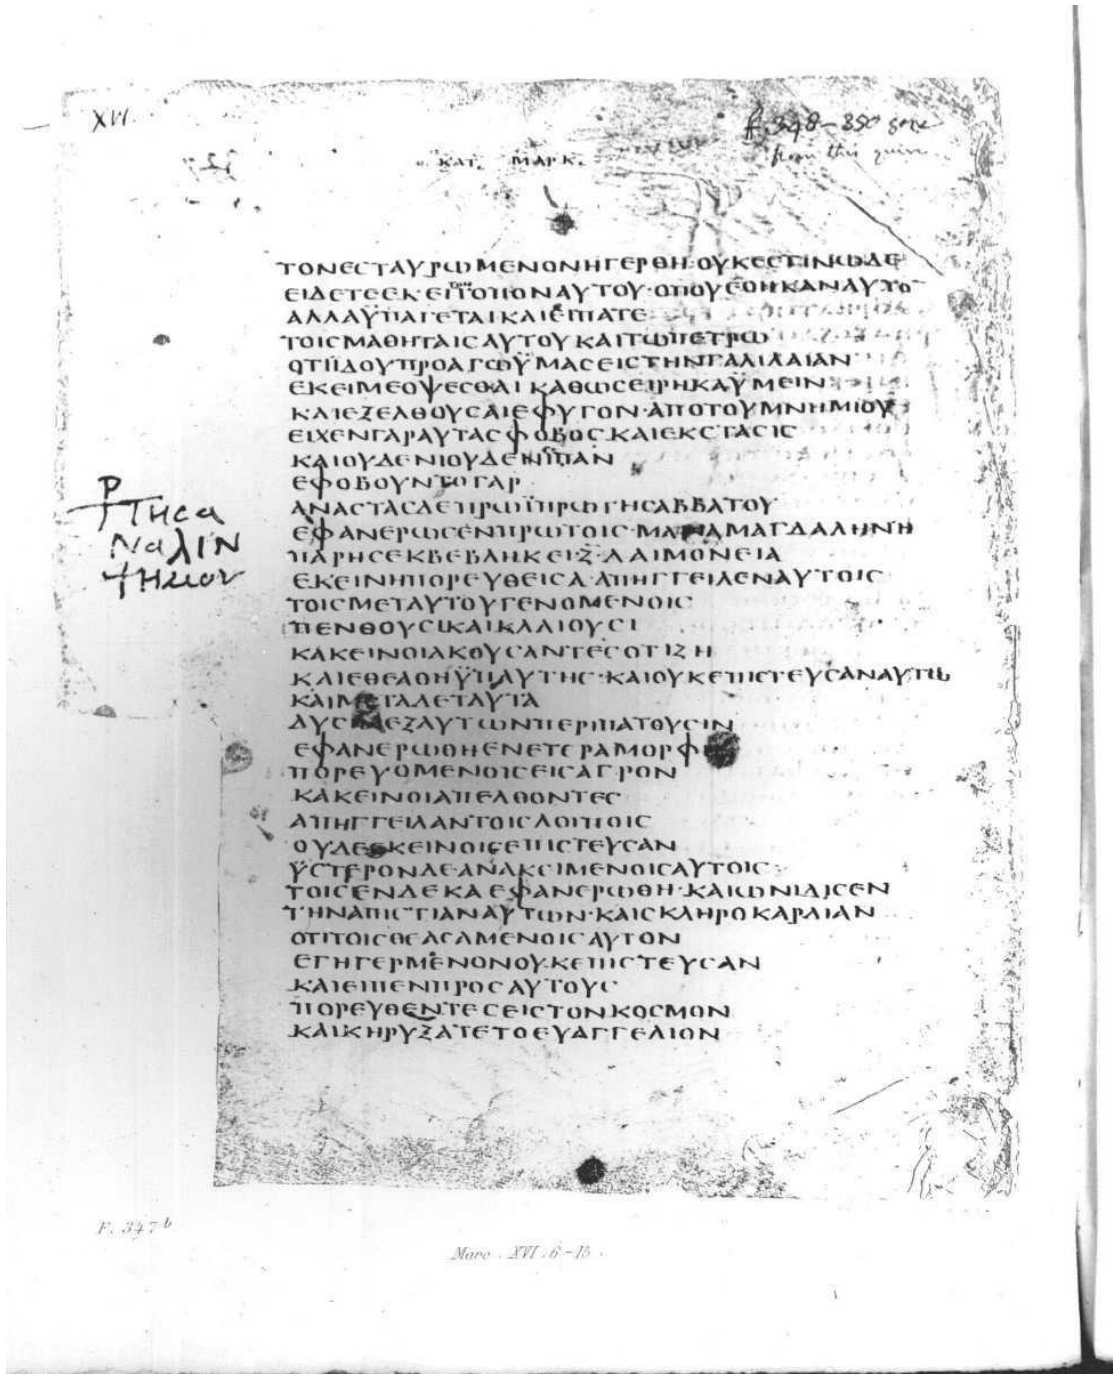 XVI
f. 348–350 gone
from this quire
ΚΑΤ. ΜΑΡΚ.
ΤΟΝΕϹΤΑΥΡΩΜΕΝΟΝΗΓΕΡΘΗ·ΟΥΚΕϹΤΙΝΩΔΕ
ΕΙΔΕΤΕΕΚΕΙΤΟΠΟΝΑΥΤΟΥ·ΟΠΟΥΕΘΗΚΑΝΑΥΤΟ
ΑΛΛΑΫΠΑΓΕΤΑΙΚΑΙΕΙΠΑΤΕ
ΤΟΙϹΜΑΘΗΤΑΙϹΑΥΤΟΥΚΑΙΤΩΠΕΤΡΩ
ΟΤΙΪΔΟΥΠΡΟΑΓΩΫΜΑϹΕΙϹΤΗΝΓΑΛΙΛΑΙΑΝ
ΕΚΕΙΜΕΟΨΕϹΘΑΙ ΚΑΘΩϹΕΙΡΗΚΑΫΜΕΙΝ
ΚΑΙΕΞΕΛΘΟΥϹΑΙΕΦΥΓΟΝ·ΑΠΟΤΟΥΜΝΗΜΙΟΥ
ΕΙΧΕΝΓΑΡΑΥΤΑϹΦΟΒΟϹ·ΚΑΙΕΚϹΤΑϹΙϹ
ΚΑΙΟΥΔΕΝΙΟΥΔΕΝΙΠΑΝ
ΕΦΟΒΟΥΝΤΟΓΑΡ
ΑΝΑϹΤΑϹΔΕΠΡΩΪΠΡΩΤΗϹΑΒΒΑΤΟΥ
ΕΦΑΝΕΡΩϹΕΝΠΡΩΤΟΙϹ·ΜΑΡΙΑΜΑΓΔΑΛΗΝΗ
ΠΑΡΗϹΕΚΒΕΒΛΗΚΕΙ·Ζ·ΔΑΙΜΟΝΕΙΑ
ΕΚΕΙΝΗΠΟΡΕΥΘΕΙϹΑ·ΑΠΗΓΓΕΙΛΕΝΑΥΤΟΙϹ
ΤΟΙϹΜΕΤΑΥΤΟΥΓΕΝΟΜΕΝΟΙϹ
ΠΕΝΘΟΥϹΙΚΑΙΚΛΑΙΟΥϹΙ
ΚΑΚΕΙΝΟΙΑΚΟΥϹΑΝΤΕϹΟΤΙΖΗ
ΚΑΙΕΘΕΑΘΗΫΠΑΥΤΗϹ·ΚΑΙΟΥΚΕΠΙϹΤΕΥϹΑΝΑΥΤΩ
ΚΑΙΜΕΤΑΔΕΤΑΥΤΑ
ΔΥϹΙΝΕΞΑΥΤΩΝΠΕΡΙΠΑΤΟΥϹΙΝ
ΕΦΑΝΕΡΩΘΗΕΝΕΤΕΡΑΜΟΡΦΗ
ΠΟΡΕΥΟΜΕΝΟΙϹΕΙϹΑΓΡΟΝ
ΚΑΚΕΙΝΟΙΑΠΕΛΘΟΝΤΕϹ
ΑΠΗΓΓΕΙΛΑΝΤΟΙϹΛΟΙΠΟΙϹ
ΟΥΔΕΕΚΕΙΝΟΙϹΕΠΙϹΤΕΥϹΑΝ
ΫϹΤΕΡΟΝΔΕ·ΑΝΑΚΕΙΜΕΝΟΙϹΑΥΤΟΙϹ
ΤΟΙϹΕΝΔΕΚΑΕΦΑΝΕΡΩΘΗ·ΚΑΙΩΝΙΔΙϹΕΝ
ΤΗΝΑΠΙϹΤΙΑΝΑΥΤΩΝ·ΚΑΙϹΚΛΗΡΟΚΑΡΔΙΑΝ
ΟΤΙΤΟΙϹΘΕΑϹΑΜΕΝΟΙϹΑΥΤΟΝ
ΕΓΗΓΕΡΜΕΝΟΝΟΥΚΕΠΙϹΤΕΥϹΑΝ
ΚΑΙΕΙΠΕΝΠΡΟϹΑΥΤΟΥϹ
ΠΟΡΕΥΘΕΝΤΕϹΕΙϹΤΟΝΚΟϹΜΟΝ
ΚΑΙΚΗΡΥΞΑΤΕΤΟΕΥΑΓΓΕΛΙΟΝ
F. 347 b
Marc. XVI. 6-15.